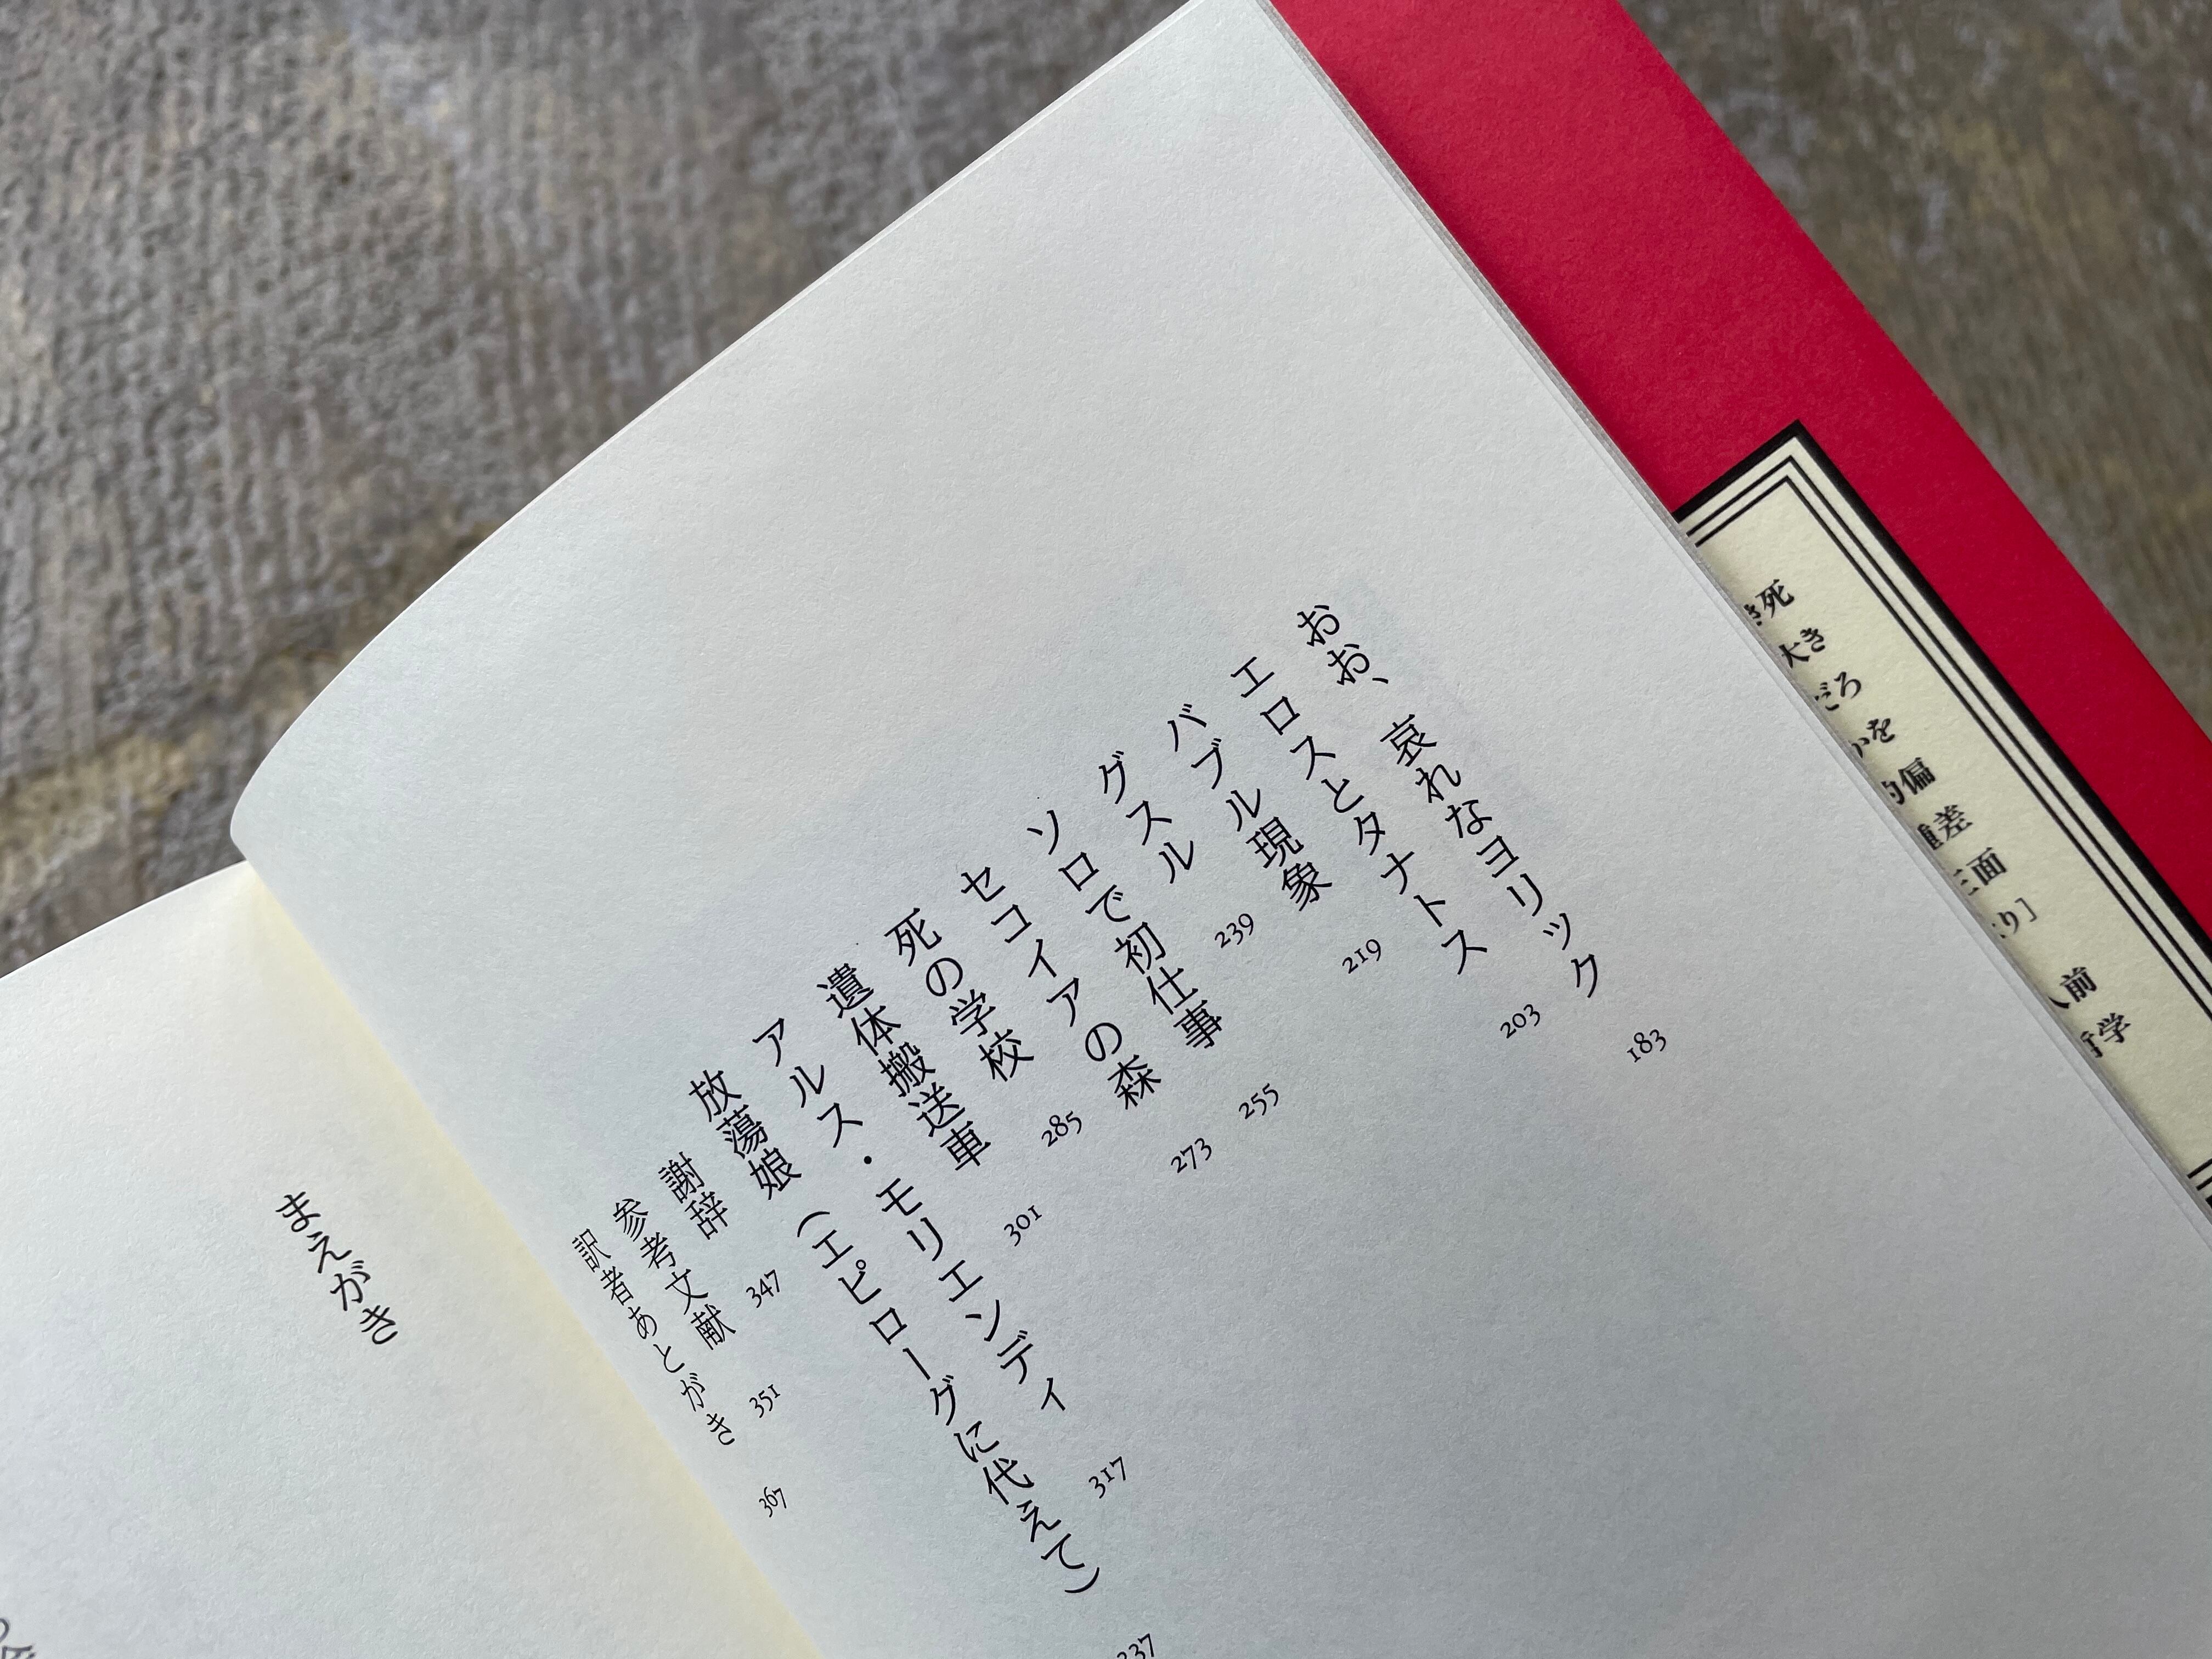 おお、哀れなヨリック 183
エロスとタナトス 203
バブル現象 219
グスル 239
ソロで初仕事 255
セコイアの森 273
死の学校 285
遺体搬送車 301
アルス・モリエンディ 317
放蕩娘（エピローグに代えて） 337
謝辞 347
参考文献 351
訳者あとがき 367
まえがき
死
大き
だろ
かを
的偏
差
三面
り］
人前
学